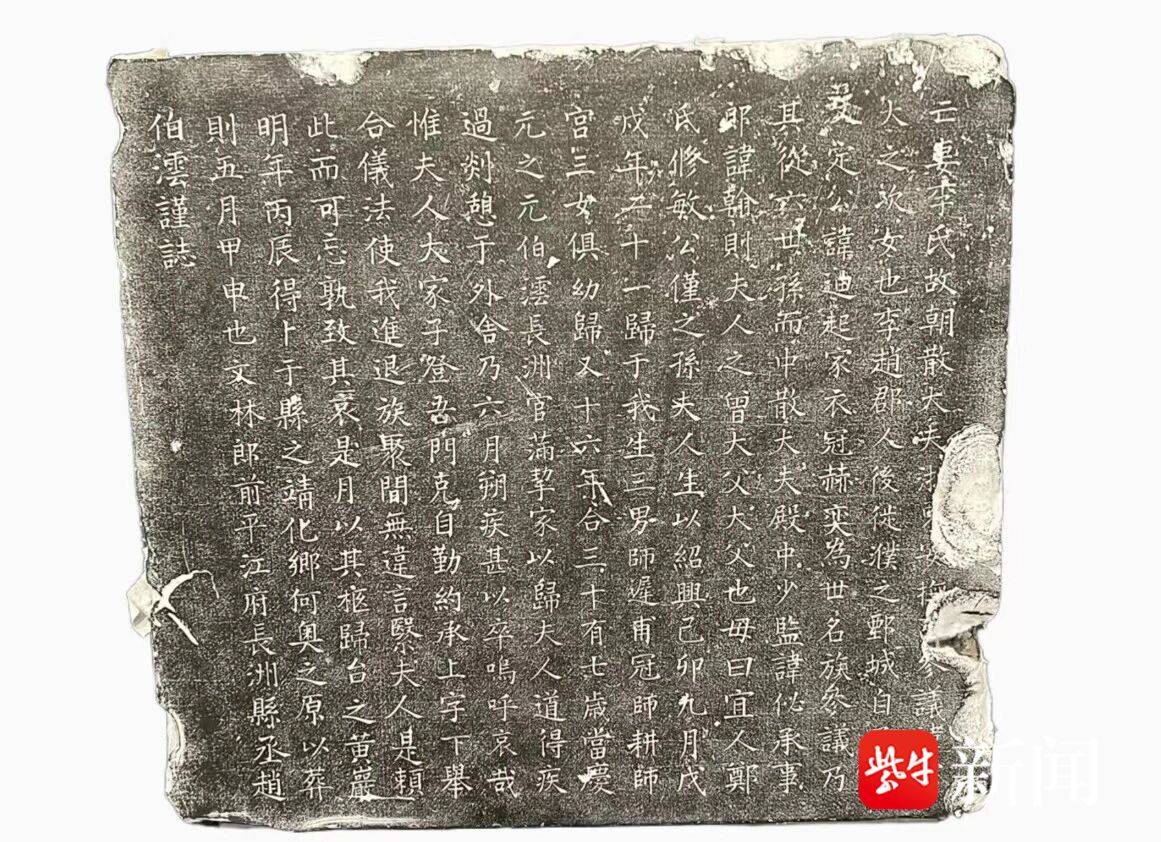 亡妻李氏故朝散大夫浙參議
之次女也李趙郡人後徙濮之鄄城自
文定公諱迪起家衣冠赫奕為世名族參議乃
其從六世孫而中散大夫殿中少監諱佖承事
郎諱翰則夫人之曾大父大父也母曰宜人鄭
氏修敏公僅之孫夫人生以紹興己卯九月戊
戌年二十一歸于我生三男師遲甫冠師耕師
宮三女俱幼歸又十六年合三十有七歲當慶
元之元伯澐長洲官滿挈家以歸夫人道得疾
過剡憩于外舍乃六月朔疾甚以卒嗚呼哀哉
惟夫人大家子登吾門克自勤約承上字下舉
合儀法使我進退族聚間無違言繄夫人是賴
此而可忘孰致其哀是月以其柩歸台之黃巖
明年丙辰得卜于縣之靖化鄉何奧之原以葬
則五月甲申也文林郎前平江府長洲縣丞趙
伯澐謹誌
紫牛新闻